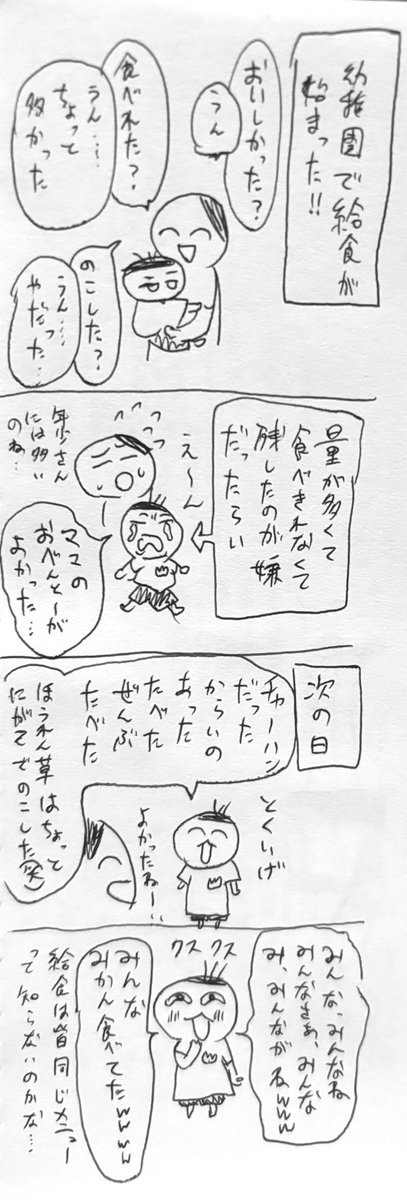 幼稚園で給食が
始まった!!
おいしかった?
うん
食べれた?
うん……
ちょっと
多かった
のこした?
うん……
やだった…
量が多くて
食べきれなくて
残したのが嫌
だったらしい
え〜ん
年少さん
には多い
のね…
ママの
おべんとーが
よかった…
次の日
チャーハン
だった
からいの
あった
たべた
ぜんぶ
たべた
ほうれん草はちょって
にがてでのこした(笑)
とくいげ
よかったねー!!
みんなっみんなね
みんなさぁ、みんな
み、みんながねwww
クスクス
みんな
みかん食べてたwwww
給食は皆同じメニュー
って知らないのかな…